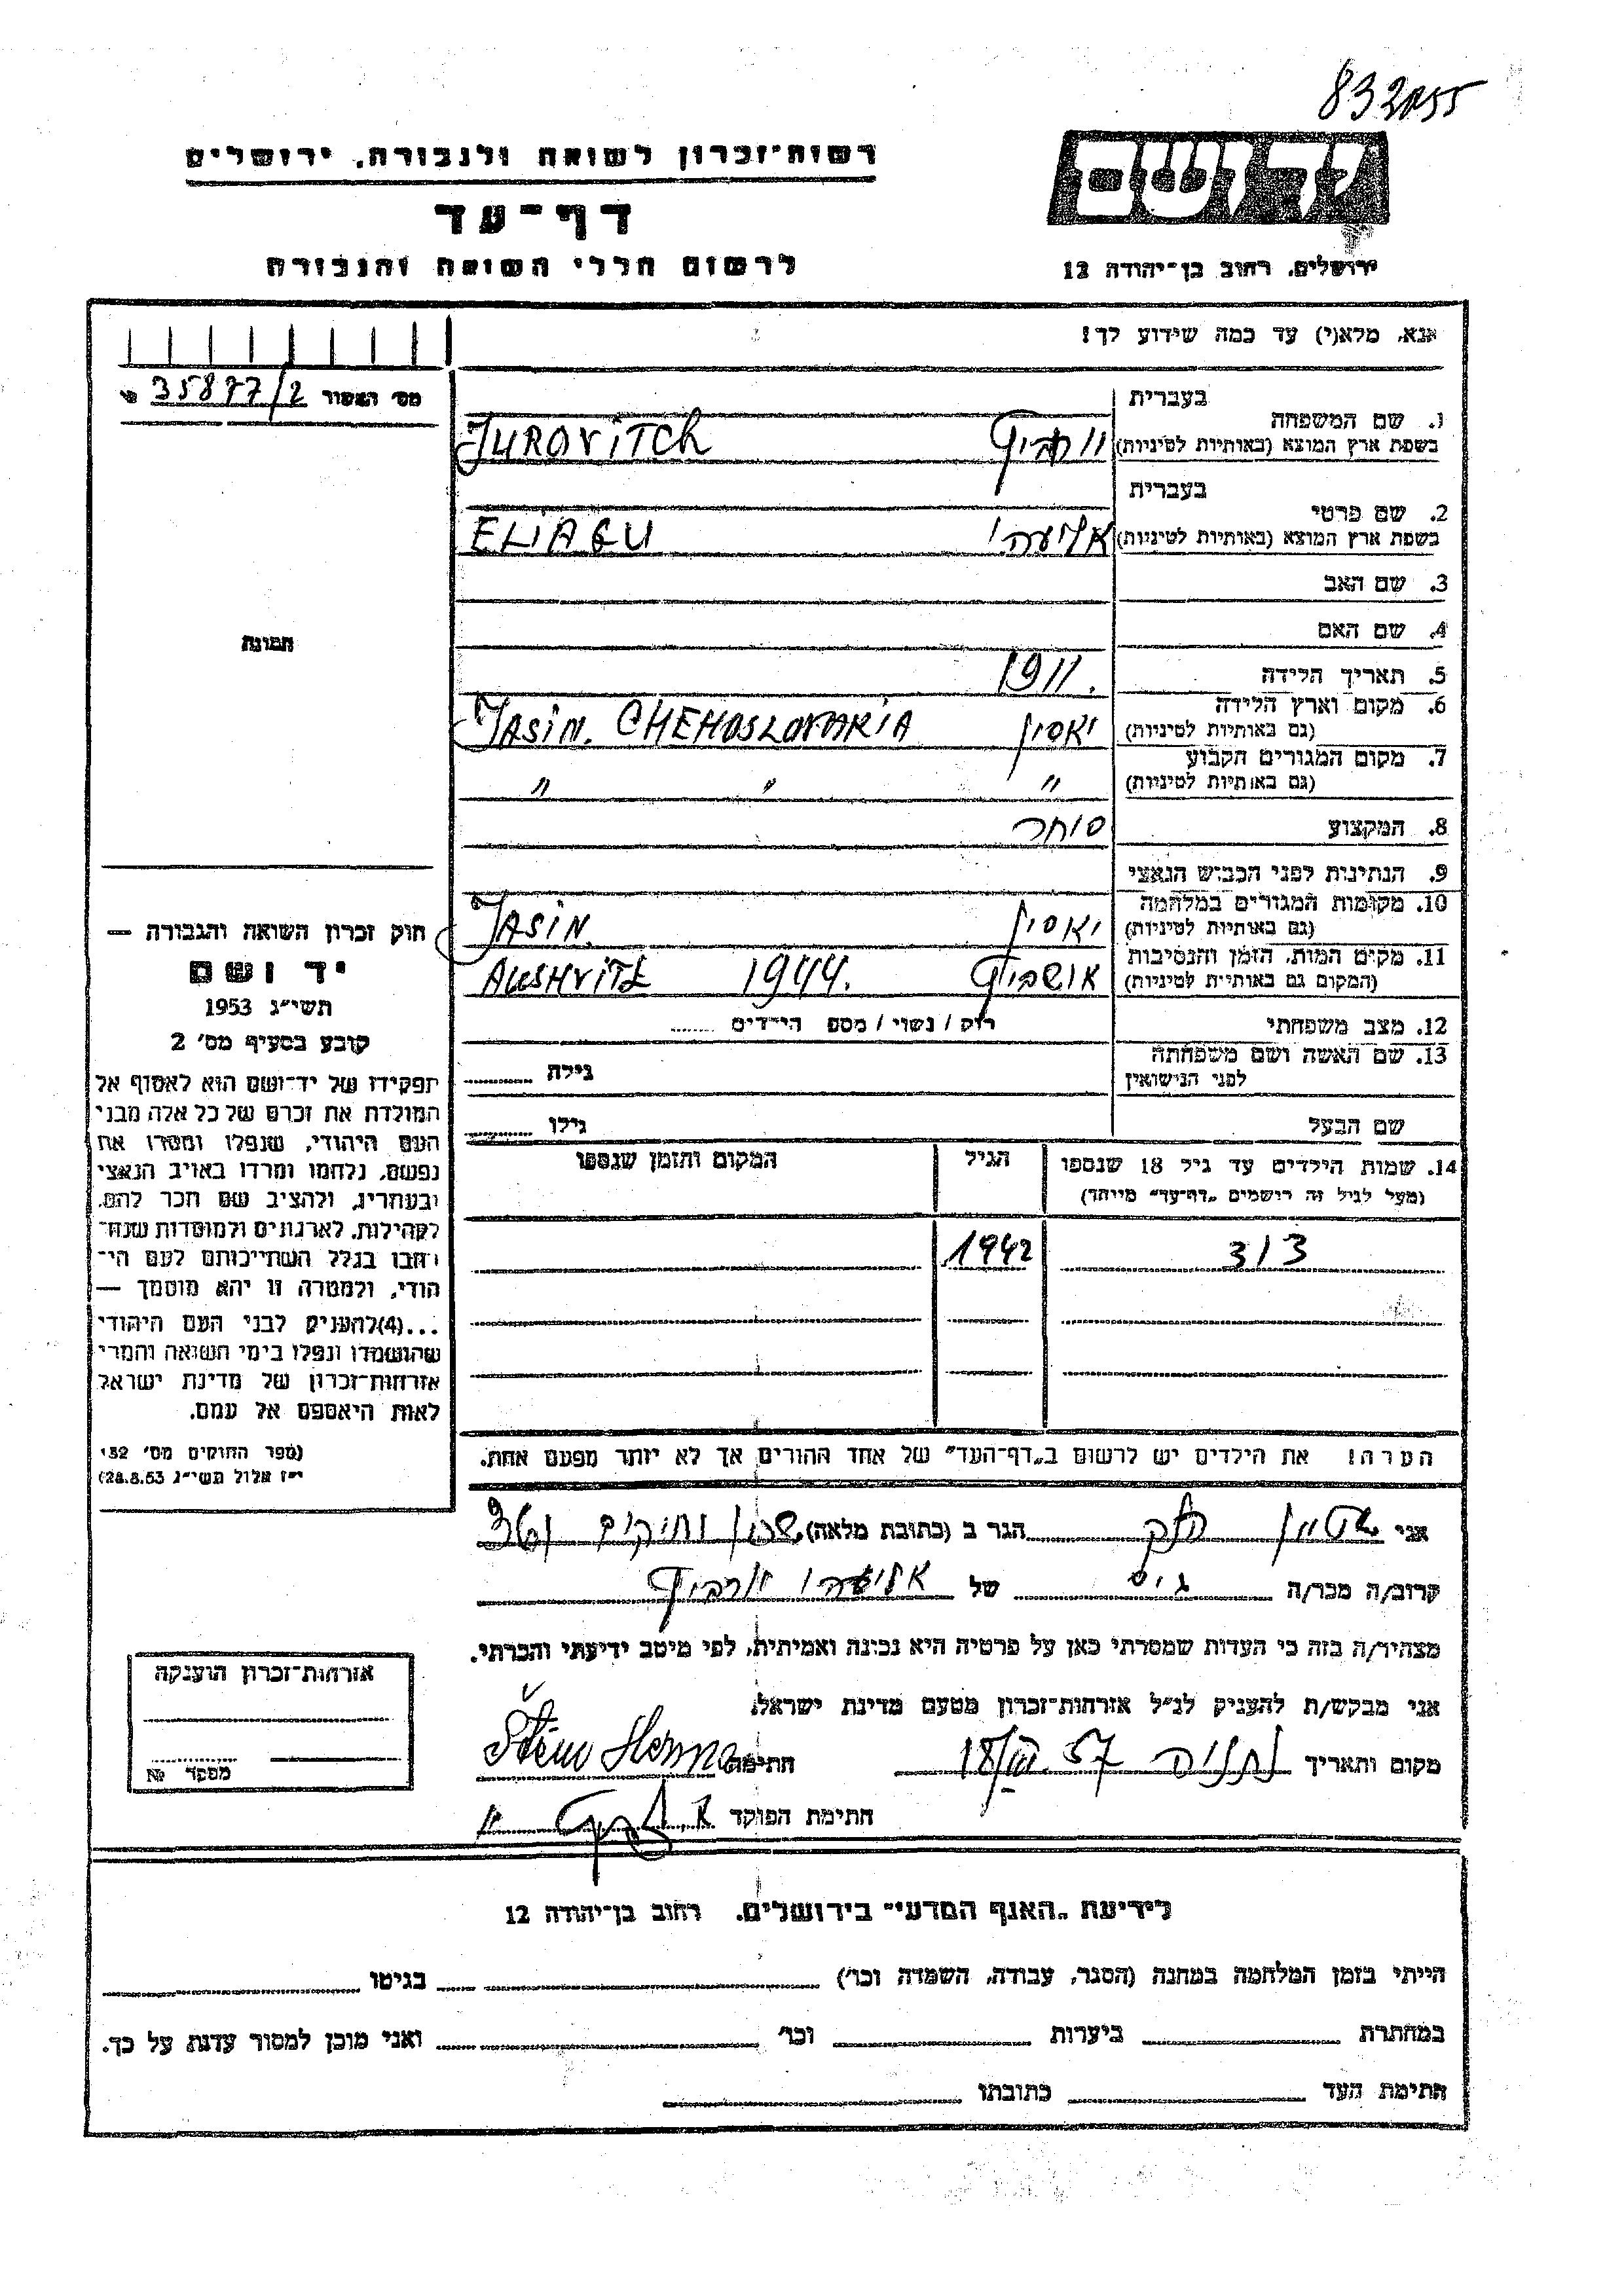 832055
רשות-זכרון לשואה ולגבורה, ירושלים
יד ושם
דף-עד
לרשום חללי השואה והגבורה
ירושלים, רחוב בן-יהודה 12
אנא, מלא(י) עד כמה שידוע לך!
מס' האסור 35877/2
בעברית
1. שם המשפחה
בשפת ארץ המוצא (באותיות לטיניות) JUROVITCH
בעברית
2. שם פרטי
בשפת ארץ המוצא (באותיות לטיניות) אליעהו ELIAGU
3. שם האב
4. שם האם
תמונה
5. תאריך הלידה 1911.
6. מקום וארץ הלידה
(גם באותיות לטיניות) יאסין JASIN. CHEHOSLOVAKIA
7. מקום המגורים הקבוע
(גם באותיות לטיניות) " " "
8. המקצוע סוחר
9. הנתינות לפני הכבוש הנאצי
10. מקומות המגורים במלחמה
(גם באותיות לטיניות) יאסין JASIN
11. מקום המות, הזמן והנסיבות
(המקום גם באותיות לטיניות) אושביץ 1944. AUSHVITZ
12. מצב משפחתי רוק / נשוי / מספ הילדים ........
13. שם האשה ושם משפחתה
לפני הנישואין גילה ........
שם הבעל גילו ........
14. שמות הילדים עד גיל 18 שנספו הגיל המקום והזמן שנספו
(מעל לגיל זה רישמים „דף-עד" מייחד)
1942
הערה! את הילדים יש לרשום ב„דף-העד" של אחד ההורים אך לא יותר מפעם אחת.
חוק זכרון השואה והגבורה —
יד ושם
תשי"ג 1953
קובע בסעיף מס' 2
תפקידו של יד-ושם הוא לאסוף אל
המולדת את זכרם של כל אלה מבני
העם היהודי, שנפלו ומסרו את
נפשם, נלחמו ומרדו באויב הנאצי
ובעוזריו, ולהציב שם וזכר להם,
לקהילות, לארגונים ולמוסדות שנח-
רבו בגלל השתייכותם לעם הי-
הודי, ולמטרה זו יהא מוסמך —
...(4)להעניק לבני העם היהודי
שהושמדו ונפלו בימי השואה והמרי
אזרחות-זכרון של מדינת ישראל
לאות היאספם אל עמם.
(ספר החוקים מס' 132
י"ז אלול תשי"ג 28.8.53)
אני הגר ב (כתובת מלאה) שכון ותיקים
קרוב/ה מכר/ה גיס של אליעהו
מצהיר/ה בזה כי העדות שמסרתי כאן על פרטיה היא נכונה ואמיתית, לפי מיטב ידיעתי והכרתי.
אני מבקש/ת להעניק לנ"ל אזרחות-זכרון מטעם מדינת ישראל.
מקום ותאריך נתניה 57 חתימה
חתימת הפוקד
אזרחות-זכרון הוענקה
מספר №
לידיעת „האגף המדעי" בירושלים, רחוב בן-יהודה 12
הייתי בזמן המלחמה במחנה (הסגר, עבודה, השמדה וכו') בגיטו
במחתרת ביערות וכו' ואני מוכן למסור עדות על כך.
חתימת העד כתובתו